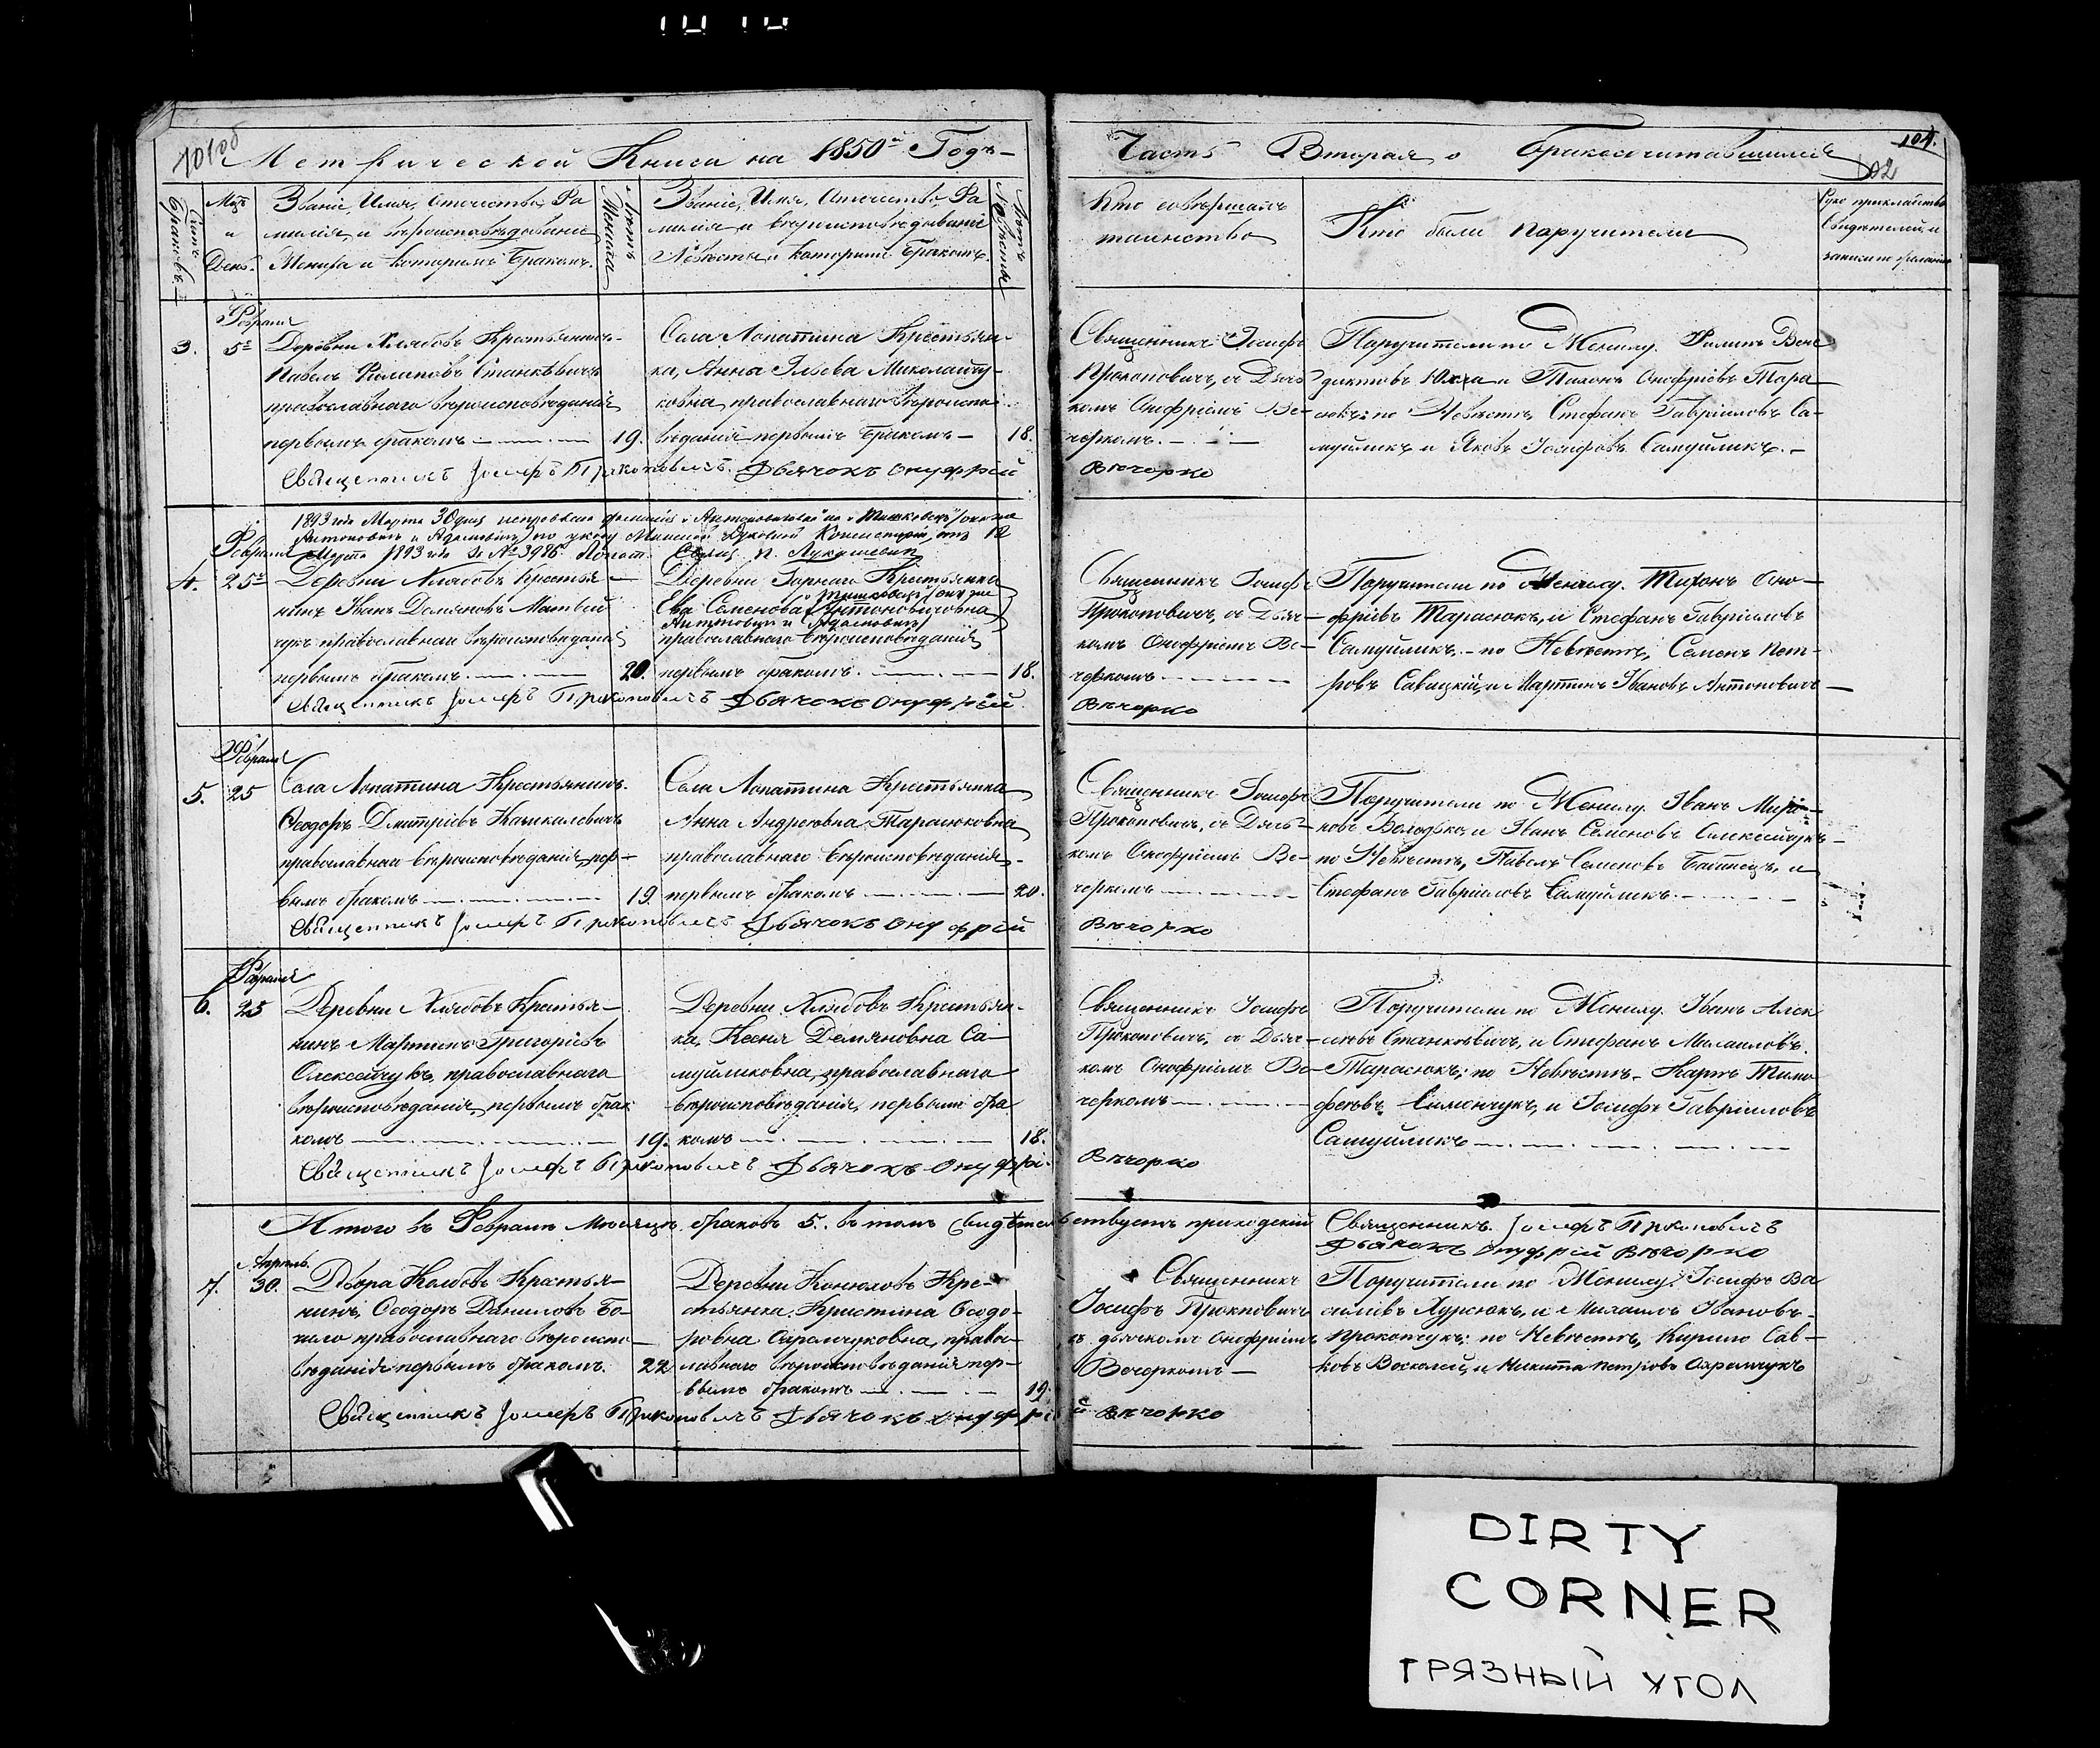 101об
Метрической Книги на 1850й Годъ
Часть Вторая о бракосочитавшихся
104.
102
Счетъ браковъ
Мцъ и День
Званіе, Имя, Отечество, Фа
милія, и вѣроисповѣданіе
Жениха и которымъ бракомъ.
Лѣта Жениха
Званіе, Имя, Отечество, Фа
милія и вѣроисповѣданіе
Невѣсты и которымъ бракомъ.
Лѣта Невѣсты
Кто совершалъ
таинство
Кто были поручители
3.
Февраля
5е
Деревни Хлябовъ Крестьянинъ
Павелъ Филиповъ Станкѣвичъ
православнаго вѣроисповѣданія
первымъ бракомъ
19.
Села Лопатина Крестьян-
ка, Анна Ильева Миколайчу-
ковна, православнаго вѣроиспо-
вѣданія первымъ бракомъ
18.
Священникъ Іосифъ
Прокоповичъ, съ Дьяч-
комъ Онофріемъ Ве-
черкомъ.
Поручители по Жениху. Филипъ Вене
диктовъ Юхта и Тихонъ Онофріевъ Тара
сюкъ; по Невѣстѣ, Стефанъ Гавріиловъ Са-
муйликъ и Яковъ Іосифовъ Самуйликъ.
Священникъ Іосифъ Прокоповичъ. Дьячокъ Онуфрій
Вечорко
1893 года Марта 30 дня исправлена фамилія
4.
Февраля
25е
Марта 1893 года за № 3986.
Деревни Хлябовъ Крестья-
нинъ Иванъ Демяновъ Матвей
чукъ православнаго вѣроисповѣданія
первымъ бракомъ.
20.
Деревни Горнаго Крестьянка
Ева Семенова Антоновичовна
православнаго вѣроисповѣданія
первымъ бракомъ.
18.
Священникъ Іосифъ
Прокоповичъ, съ Дьяч-
комъ Онофріемъ Ве-
черкомъ
Поручители по Жениху. Тихонъ Оно-
фріевъ Тарасюкъ, и Стефанъ Гавріиловъ
Самуйликъ. по Невѣстѣ, Семенъ Пет-
ровъ Савицкій, и Мартинъ Ивановъ Антоновичъ
Священникъ Іосифъ Прокоповичъ Дьячокъ Онуфрій
Вечорко
5.
Февраля
25
Села Лопатина Крестьянинъ.
Ѳеодоръ Дмитріевъ
православнаго вѣроисповѣданія, пер-
вымъ бракомъ
19.
Села Лопатина Крестьянка
Анна Андреювна Тарасюковна
православнаго вѣроисповѣданія
первымъ бракомъ
20.
Священникъ Іосифъ
Прокоповичъ, съ Дьяч-
комъ Онофріемъ Ве-
черкомъ
Поручители по Жениху. Иванъ Миро-
новъ Володько, и Иванъ Семеновъ Олексейчукъ
по Невѣстѣ, Павелъ Семеновъ
Стефанъ Гавріиловъ Самуйликъ.
Священникъ Іосифъ Прокоповичъ Дьячокъ Онуфрій
Вечорко
6.
Февраля
25
Деревни Хлябовъ Крестья-
нинъ Мартинъ Григоріевъ
Олексейчукъ, православнаго
вѣроисповѣданія, первымъ бра
комъ
19.
Деревни Хлябовъ Крестьян-
ка, Ксеня Демяновна Са-
муйликовна, православнаго
вѣроисповѣданія, первымъ бра
комъ
18.
Священникъ Іосифъ
Прокоповичъ, съ Дьяч-
комъ Онофріемъ Ве-
черкомъ
Поручители по Жениху. Иванъ Алек
сѣевъ Станкѣвичъ, и Стефанъ Михаиловъ
Тарасюкъ; по Невѣстѣ, Карпъ Тимо
феевъ Симончукъ, и Іосифъ Гавріиловъ
Самуйликъ
Священникъ Іосифъ Прокоповичъ Дьячокъ Онуфрі
Вечорко
Итого въ Февралѣ Мѣсяцѣ браковъ 5. въ томъ свидѣтельствуетъ приходскій Священникъ Іосифъ Прокоповичъ
Дьячокъ Онуфрій Вечорко
7.
Апрель.
30.
Двора Колбовъ Крестья-
нинъ, Ѳеодоръ Даниловъ Бо-
православнаго вѣроиспо-
вѣданія первымъ бракомъ.
22
Деревни Конюховъ Кре-
стьянка, Кристина Ѳеодо-
ровна Охремчуковна, право-
славнаго вѣроисповѣданія пер-
вымъ бракомъ
19.
Священникъ
Іосифъ Прокоповичъ
съ дьячкомъ Онофріемъ
Вечоркомъ
Поручители по Жениху. Іосифъ Ва
силіевъ Хурсюкъ, и Михаилъ Ивановъ
Прокопчукъ; по Невѣстѣ, Кирило Сав-
ковъ и Никита Петровъ Охремчукъ
Священникъ Іосифъ Прокоповичъ Дьячокъ Онуфрій Вечорко
DIRTY
CORNER
ГРЯЗНЫЙ УГОЛ